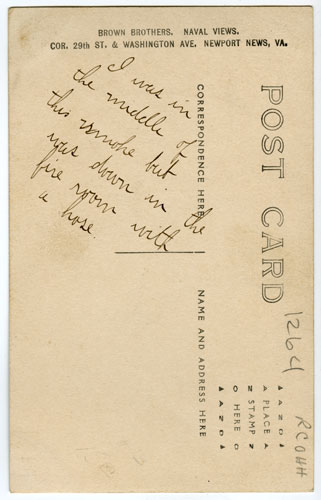 BROWN BROTHERS. NAVAL VIEWS.
COR. 29th ST. & WASHINGTON AVE. NEWPORT NEWS, VA.
I was in
the middle of
this smoke but
was down in the
fire room with
a hose.
POST CARD
CORRESPONDENCE HERE
NAME AND ADDRESS HERE
AZO
PLACE
STAMP
HERE
AZO
1264
RCOHH